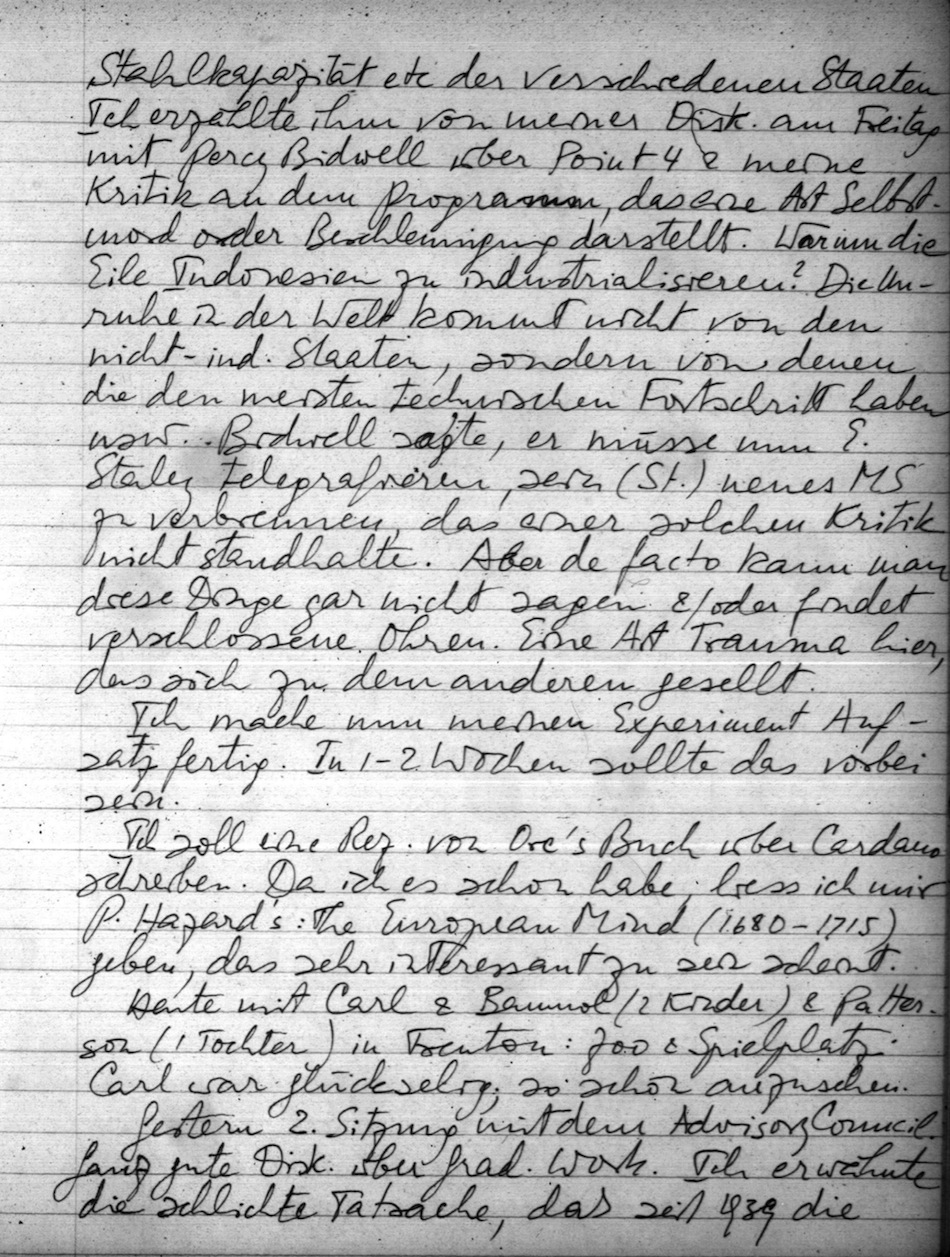 Stahlkapazität etc der verschiedenen Staaten
Ich erzählte ihm von meiner Disk. am Freitag
mit Percy Bidwell über Point 4 & meine
Kritik an dem Programm, das eine Art Selbst-
mord oder Beschleunigung darstellt. Warum die
Eile Indonesien zu industrialisieren? Die Un-
ruhe in der Welt kommt nicht von den
nicht-ind. Staaten, sondern von denen
die den meisten technischen Fortschritt haben
usw. Bidwell sagte, er müsse nun E.
Staley telegrafieren, sein (St.) neues MS
zu verbrennen, das einer solchen Kritik
nicht standhalte. Aber de facto kann man
diese Dinge gar nicht sagen &/oder findet
verschlossene Ohren. Eine Art Trauma hier,
das sich zu dem anderen gesellt.
Ich mache nun meinen Experiment Auf-
satz fertig. In 1-2 Wochen sollte das vorbei
sein.
Ich soll eine Rez. von Ore's Buch über Cardano
schreiben. Da ich es schon habe, liess ich mir
P. Hazard's: The European Mind (1680-1715)
geben, das sehr interessant zu sein scheint.
Heute mit Carl & Baumol (2 Kinder) & Patter-
son (1 Tochter) in Trenton: Zoo & Spielplatz.
Carl war glückselig; so schön anzusehen.
Gestern 2. Sitzung mit dem Advisory Council.
Ganz gute Disk. über grad. Work. Ich erwähnte
die schlichte Tatsache, das seit 1939 die